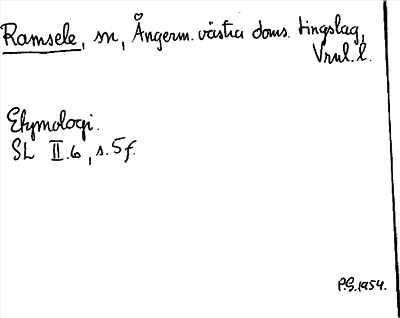 Ramsele, sn, Ångerm. västra doms. tingslag,
Vrml. l.
Etymologi.
SL II.6, s. 5 f.
P.G. 1954.